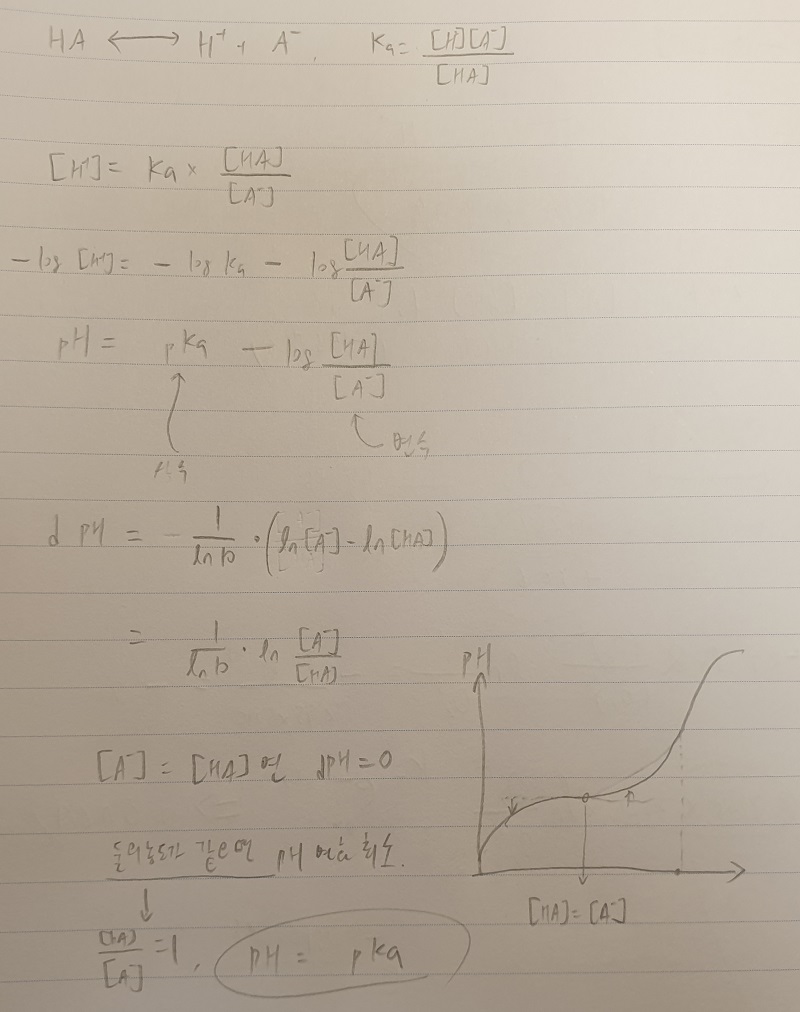 HA ⟷ H⁺ + A⁻, Ka = [H⁺][A⁻] / [HA]
[H⁺] = Ka × [HA] / [A⁻]
-log [H⁺] = - log Ka - log [HA] / [A⁻]
pH = pKa - log [HA] / [A⁻]
상수
변수
d pH = - 1 / ln10 · (ln[A⁻] - ln[HA])
= 1 / ln10 · ln [A⁻] / [HA]
[A⁻] = [HA] 면 dpH = 0
둘의 농도가 같으면 pH 변화 최소.
[HA] / [A⁻] = 1, pH = pKa
pH
[HA] = [A⁻]